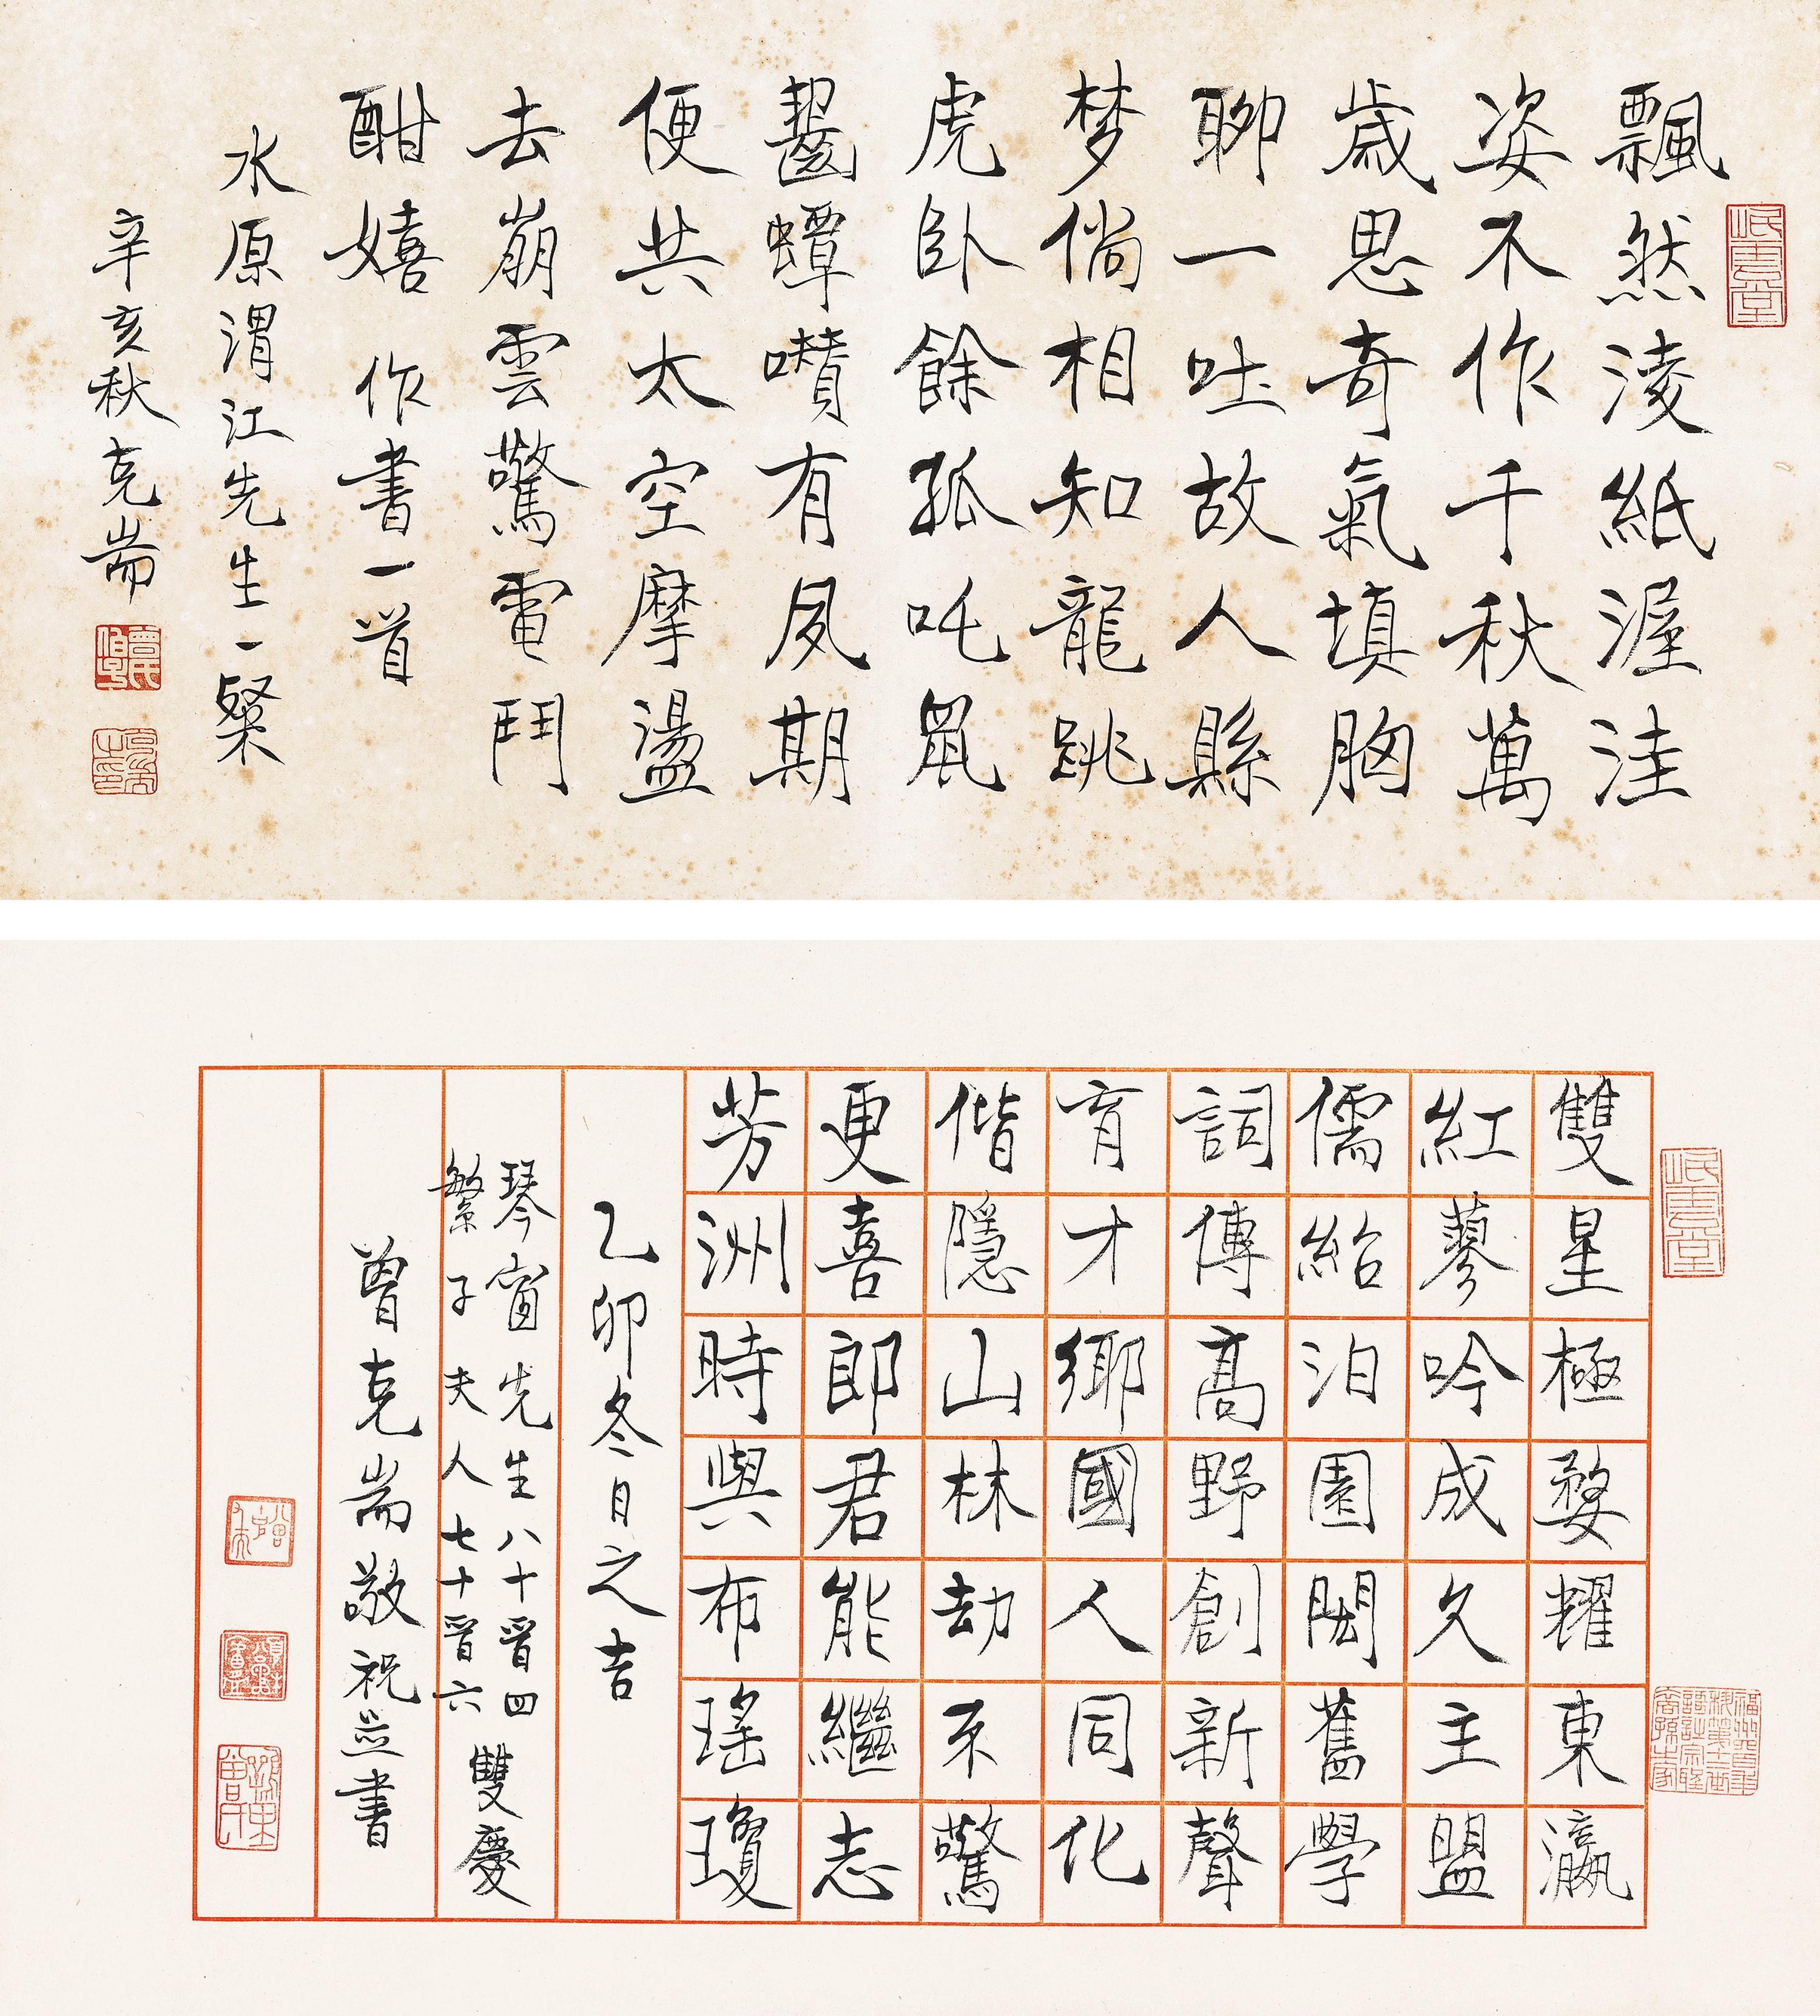 飄然淩紙渥洼
姿不作千秋萬
歲思奇氣填胸
聊一吐故人縣
梦倘相知龍跳
虎臥餘孤吒鼠
齧蟫嚽有夙期
便共太空摩盪
去崩雲驚電鬥
酣嬉 作書一首
水原渭江先生一粲
辛亥秋克耑
雙星極婺耀東瀛
紅蓼吟成久主盟
儒紿泊園閎舊學
詞傳高野創新聲
育才鄉國人同化
偕隱山林劫不驚
更喜郎君能繼志
芳洲時與布瑤瓊
乙卯冬日之吉
琴窗先生八十晉四
繁子夫人七十晉六
雙慶
曾克耑敬祝並書